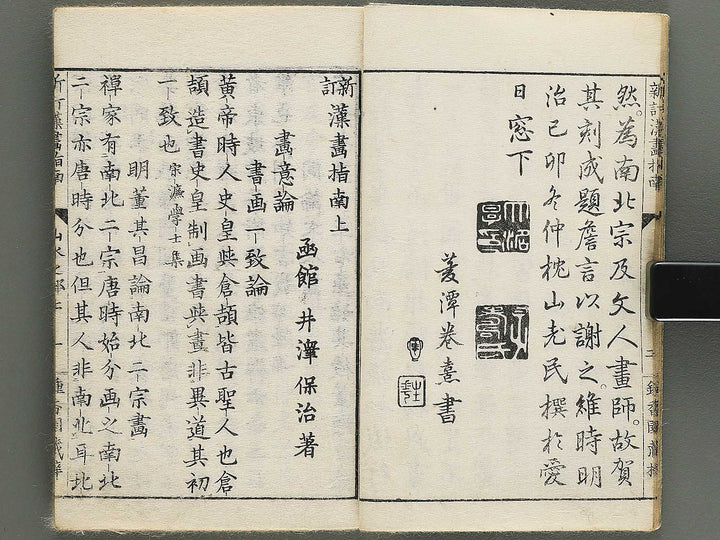 然。為南北宗及文人畫師。故賀
其刻成題詹言以謝之。維時明
治己卯冬仲枕山老民撰於愛
日窓下
菱潭卷熹書
新訂
漢畫指南上
函館 井澤保治著
畫意論
書画一致論
黄帝時人史皇與倉頡皆古聖人也倉
頡造書史皇制画書與畫非異道其初
一致也 宋濂學士集
明董其昌論南北二宗畫
禅家有南北二宗唐時始分画之南北
二宗亦唐時分也但其人非南北耳北